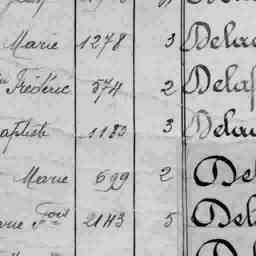 Marie 1278 3 Delac
Frédéric 574 2 Delaf
aptiste 1183 3 Delac
Marie 699 2 Del
arie Fçois 2143 5 Dela